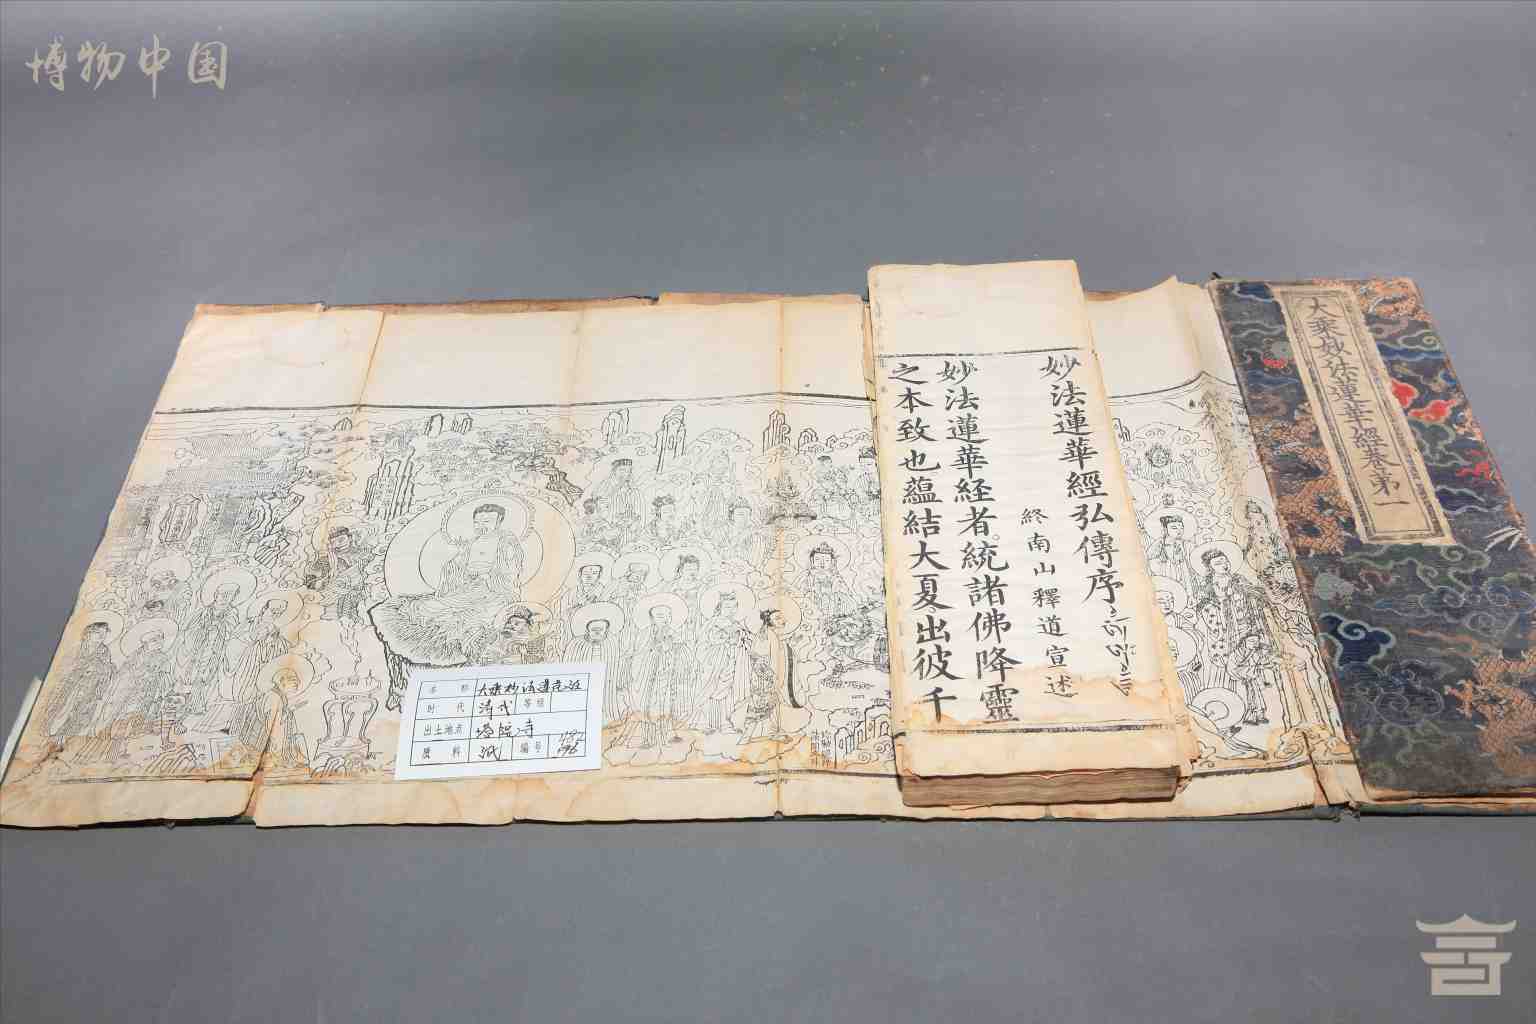 博物中国
大乘妙法蓮華經卷第一
妙法蓮華經弘傳序
終南山釋道宣述
妙法蓮華経者統諸佛降靈
之本致也蘊結大夏出彼千
名 称 大乘妙法莲花经
时 代 清代 等级
出土地点 塔院寺
质 料 纸 编号